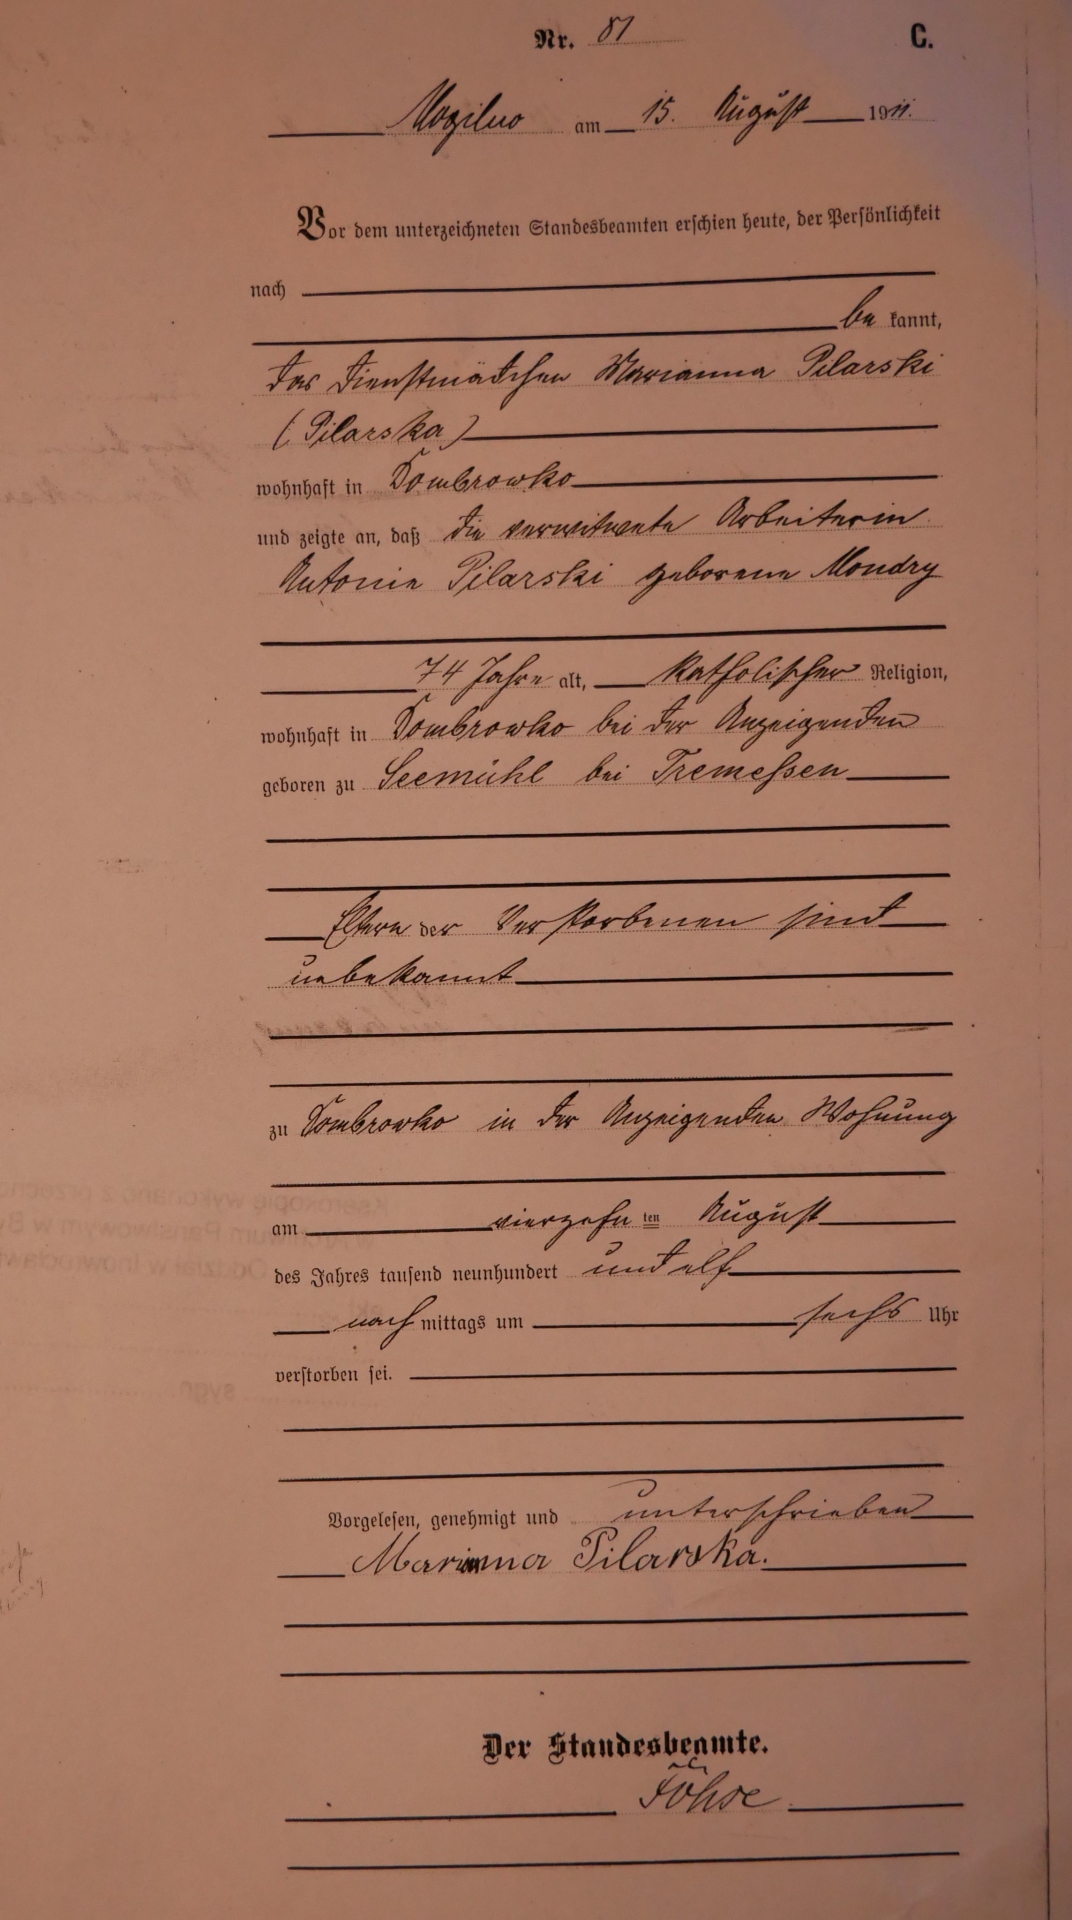 Nr. 81 C.
Mogilno am 15. August 1911.
Vor dem unterzeichneten Standesbeamten erschien heute, der Persönlichkeit
nach
be kannt,
das Dienstmädchen Marianna Pilarski
(Pilarska)
wohnhaft in Dombrowko
und zeigte an, daß die verwitwete Arbeiterin
Antonie Pilarski geborene Mondry
74 Jahre alt, katholischer Religion,
wohnhaft in Dombrowko bei der Anzeigenden
geboren zu Seemühl bei Tremessen
Eltern der Verstorbenen sind
unbekannt
zu Dombrowko in der Anzeigenden Wohnung
am vierzehn ten August
des Jahres tausend neunhundert und elf
nach mittags um sechs Uhr
verstorben sei.
Vorgelesen, genehmigt und unterschrieben
Marianna Pilarska.
Der Standesbeamte.